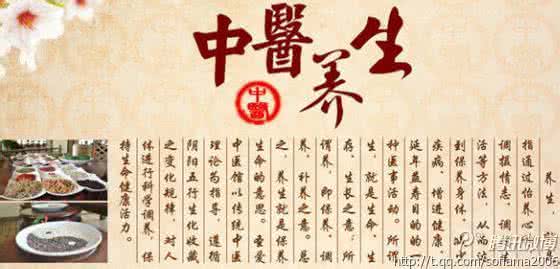 中醫养生
中醫
养生,
指通过怡养心
调摄情志、调
活等方法,从而达
到保养身体、减少
疾病、增进健康、
延年益寿目的的一
种医事活动。所谓
生,就是生命、生
存、生长之意;所
谓养,即保养、调
养、补养之意。总
之,养生就是保养
生命的意思。圣爱
中医馆以传统中医
理论为指导,遵循
阴阳五行生化收藏
之变化规律,对人
体进行科学调养,保
持生命健康活力。
腾讯微博
http://t.qq.com/sofiama2006